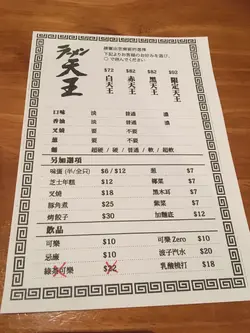 ラーメン
天王
請圈出您喜歡的選擇
下記よりお客様のお好みを選び、
○で囲んでください
$72 $82 $82 $92
白天王 赤天王 黑天王 限定天王
口味 淡 普通 濃
香油 淡 普通 濃
叉燒 要 不要
蔥 要 不要
麵 超硬 / 硬 / 普通 / 軟 / 超軟
另加選項
味蛋 (半/全只) $6 / $12 蔥 $7
芝士年糕 $12 椰菜 $7
叉燒 $18 黑木耳 $7
豚角煮 $25 紫菜 $7
烤餃子 $30 加麵底 $12
飲品
可樂 $10 可樂 Zero $10
忌廉 $10 波子汽水 $20
綠茶可樂 $22 乳酸梳打 $18